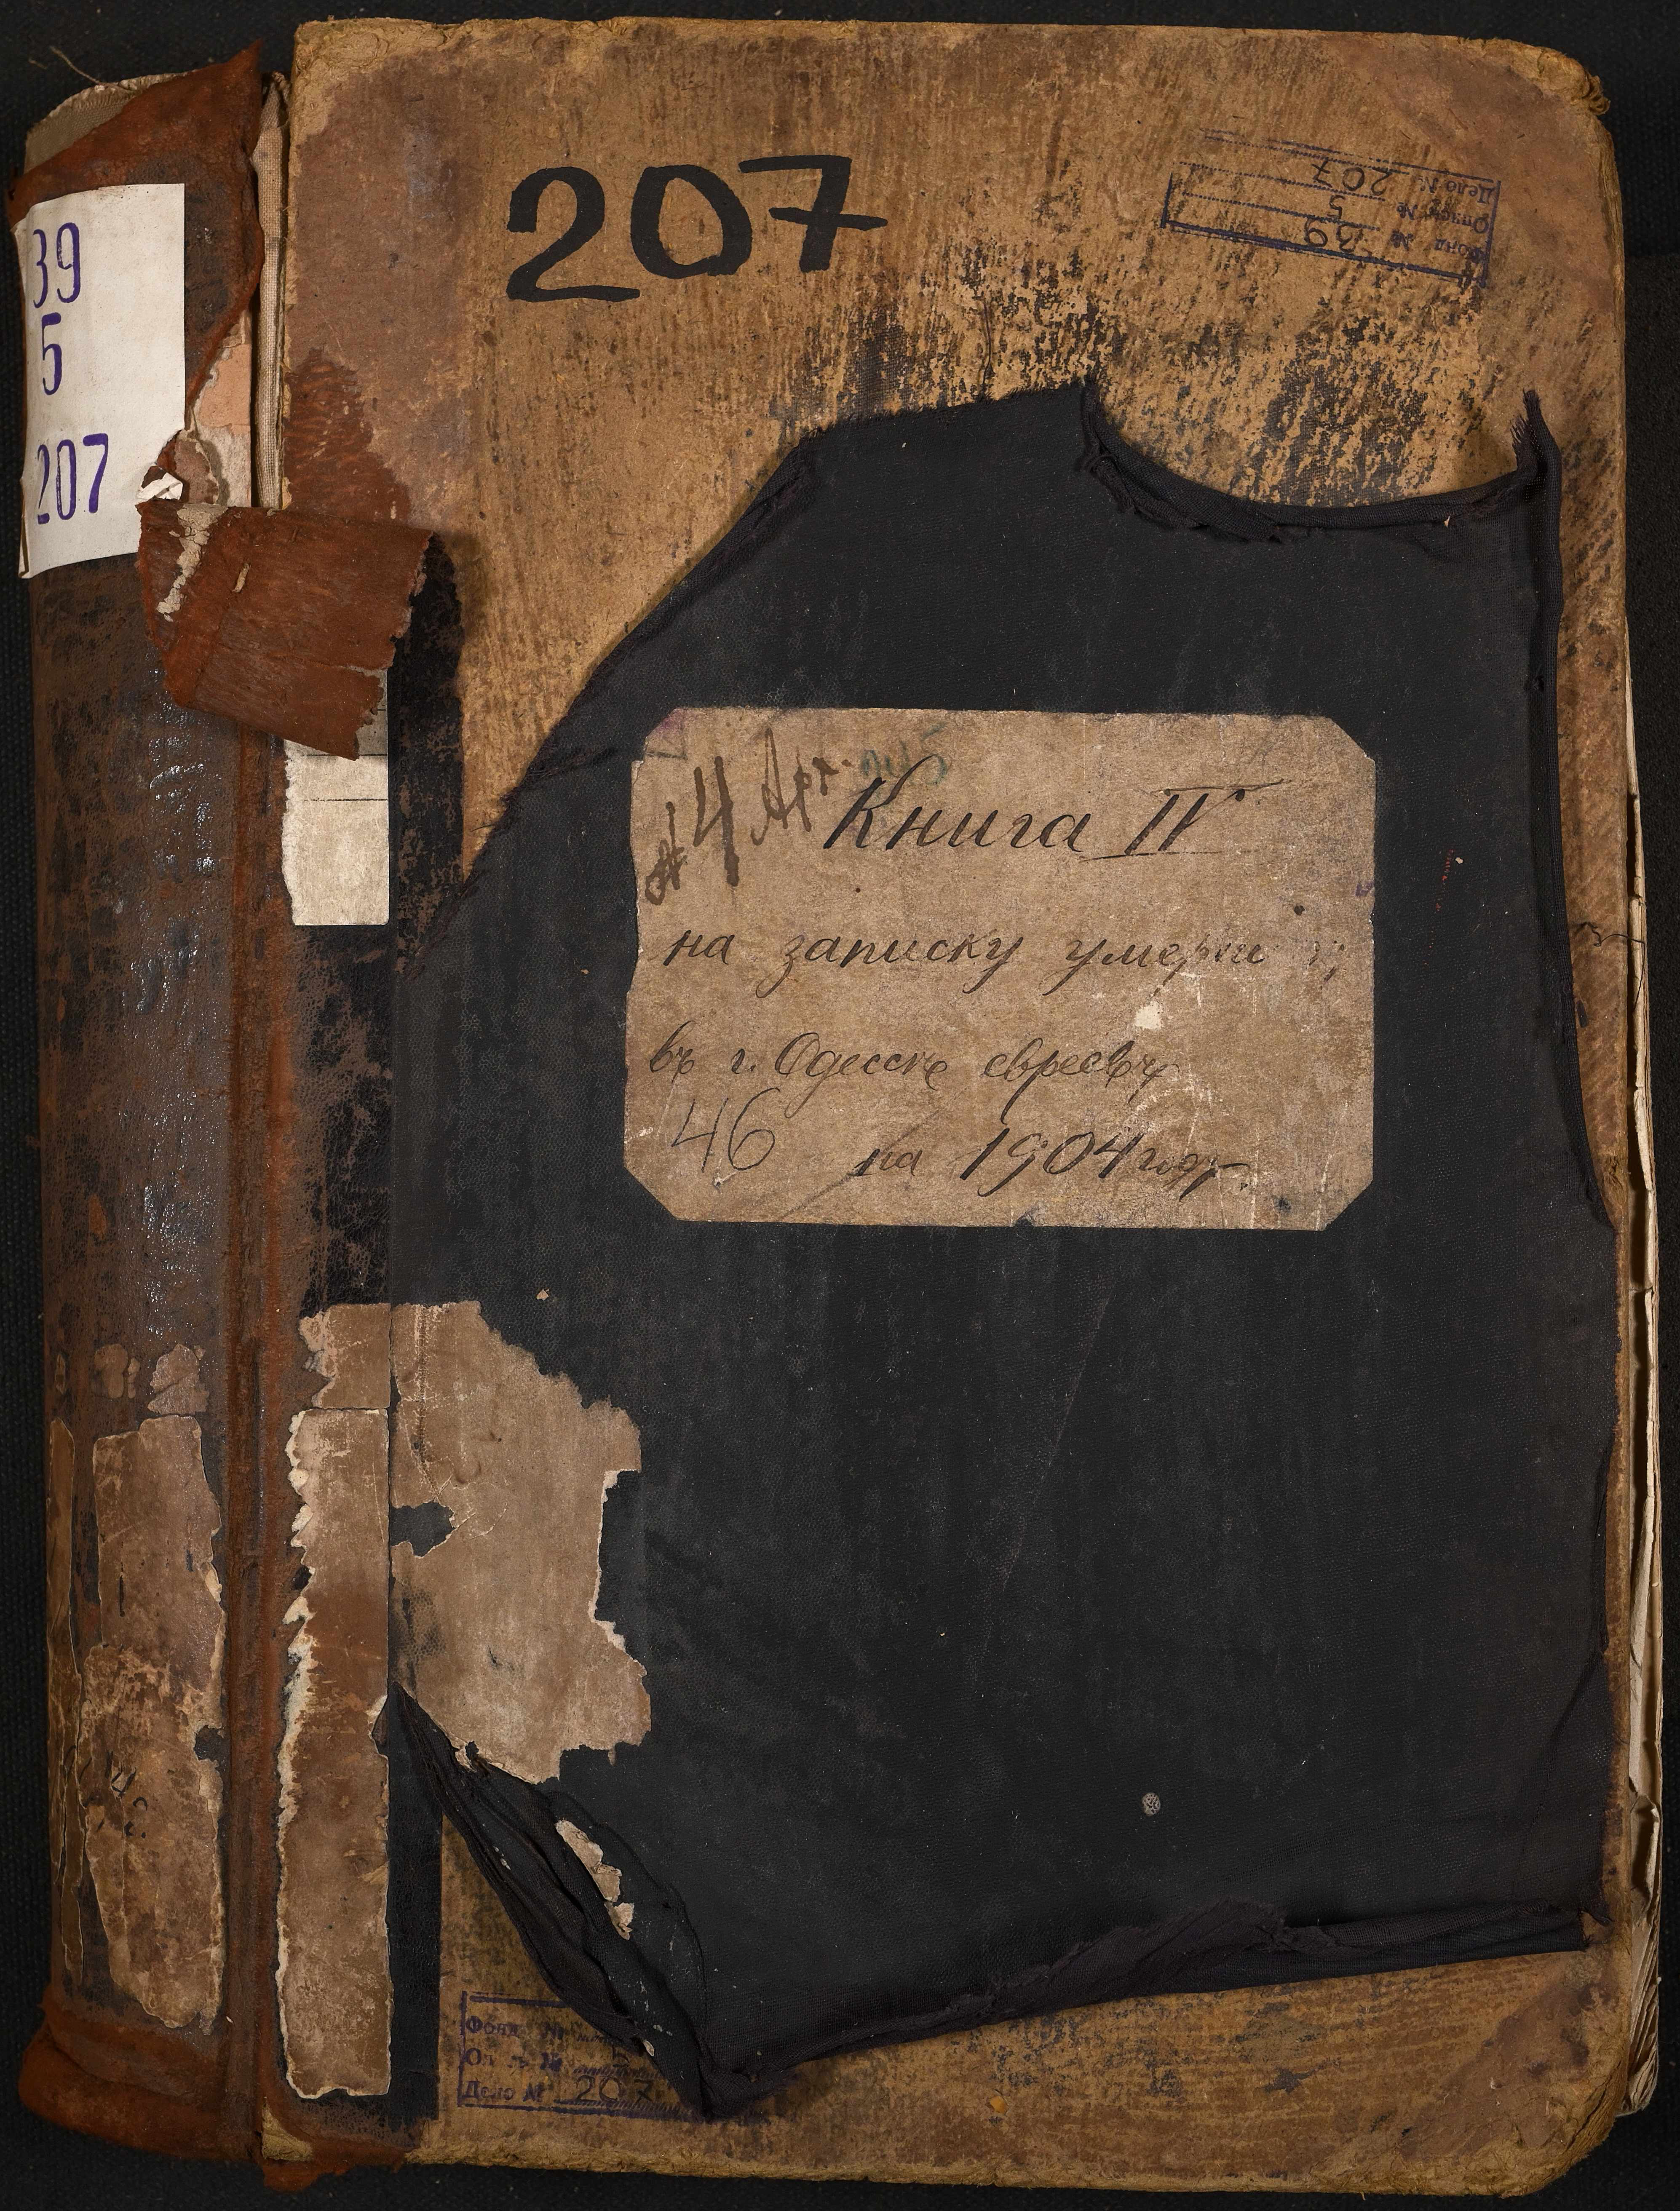 39
5
207
207
Фонд № 39
Опись № 5
Дело № 207
№ 4 Арх.
Книга IV
на записку
въ г. Одессѣ евреевъ
46 на 1904 годъ.
Фонд №
Дело № 207